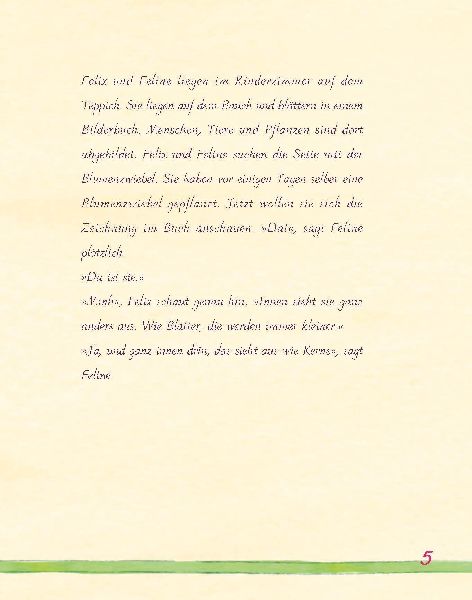 Felix und Feline liegen im Kinderzimmer auf dem
Teppich. Sie liegen auf dem Bauch und blättern in einem
Bilderbuch. Menschen, Tiere und Pflanzen sind dort
abgebildet. Felix und Feline suchen die Seite mit der
Blumenzwiebel. Sie haben vor einigen Tagen selber eine
Blumenzwiebel gepflanzt. Jetzt wollen sie sich die
Zeichnung im Buch anschauen. sagt Feline
plötzlich.
»Da ist sie.«
Felix schaut genau hin. »Innen sieht sie ganz
anders aus. Wie Blätter, die werden immer kleiner.«
»Ja, und ganz innen drin, das sieht aus wie Kerne«, sagt
Feline.
5